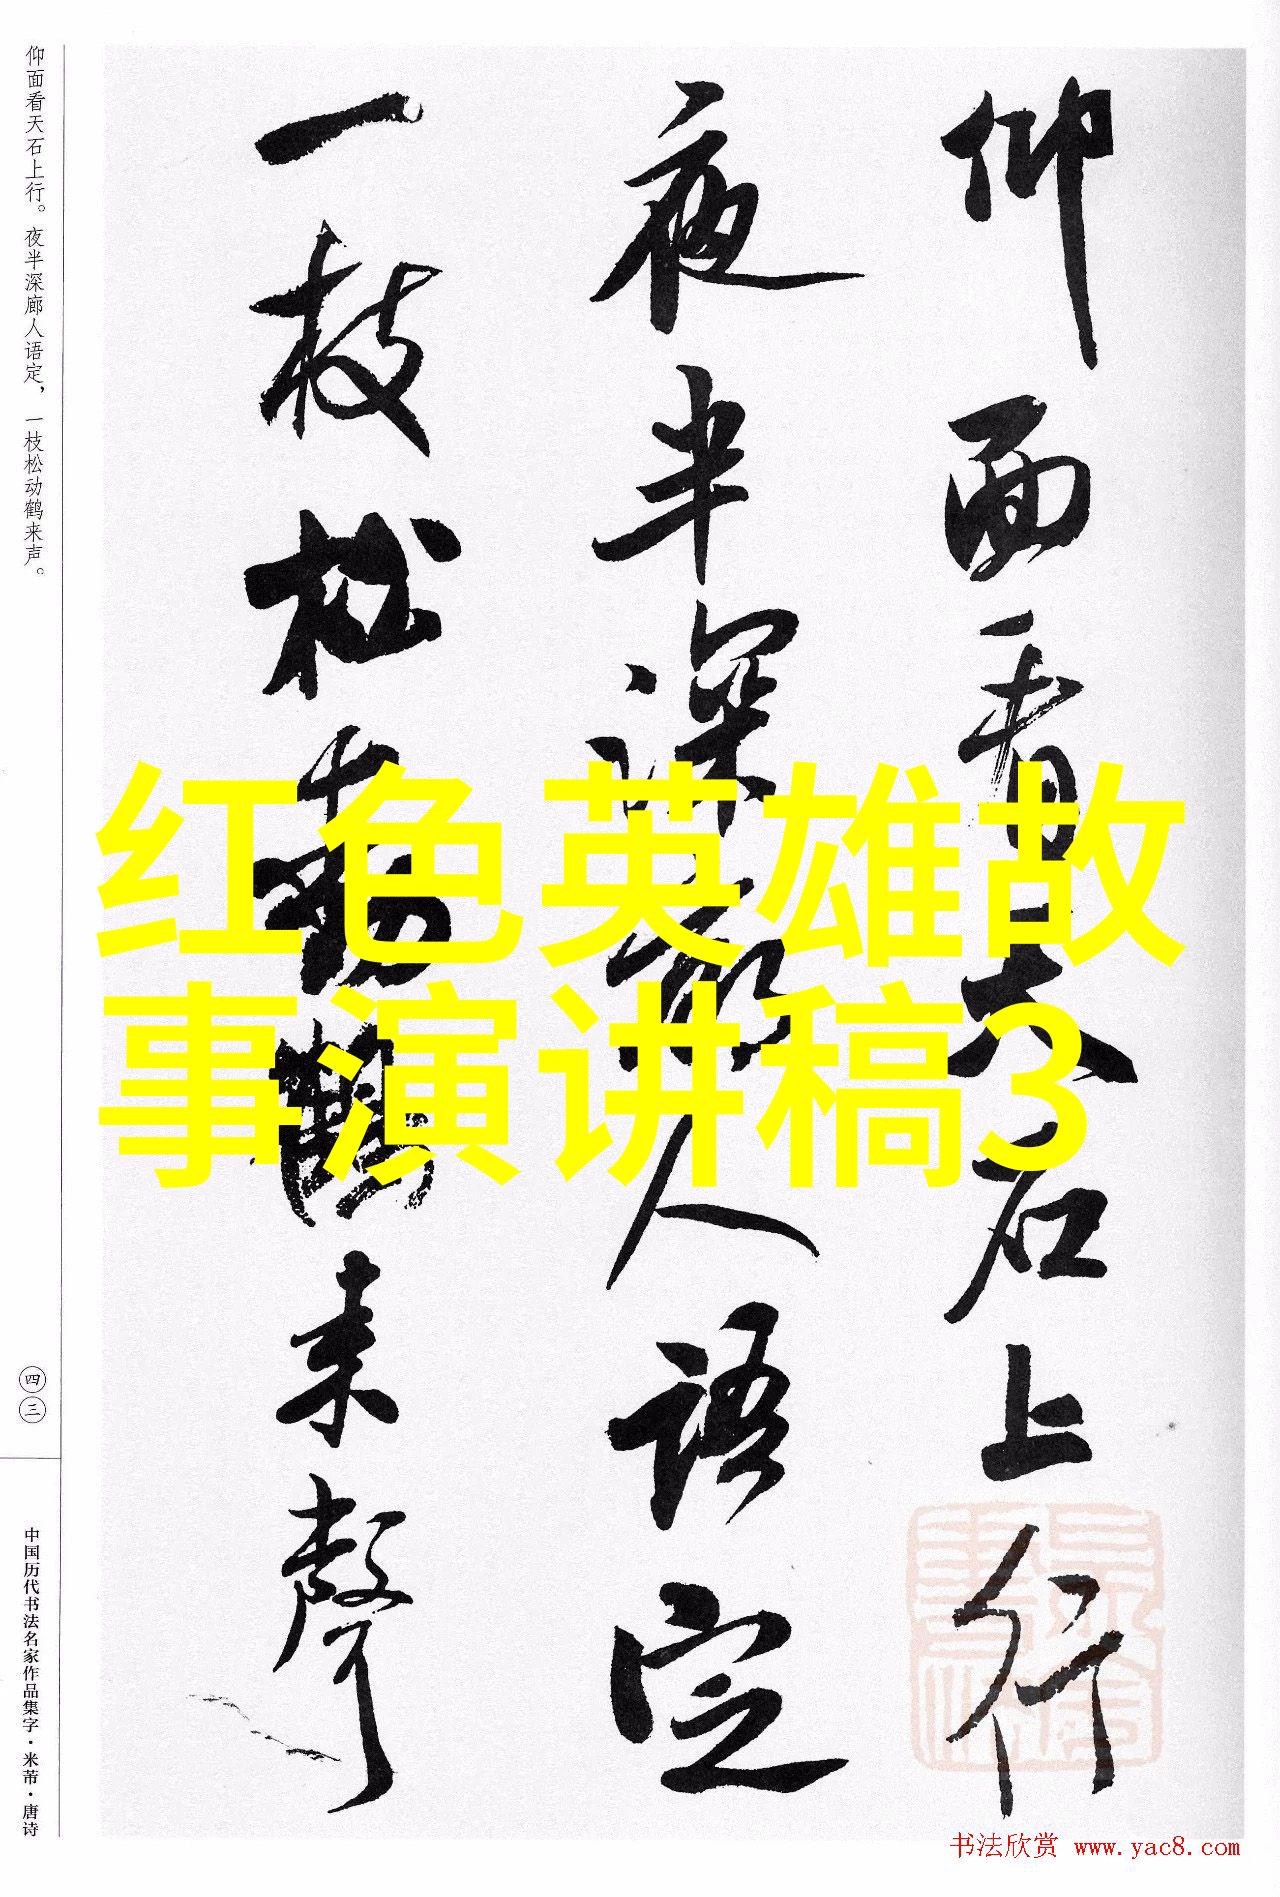 仰面看天石上行
夜半深廊人语定
一枝松動鶴来聲
红色英雄故
事演讲稿3
仰面看天石上行。夜半深廊人语定，一枝松动鹤来声。
四三
中国历代书法名家作品集字·米芾·唐诗
书法欣赏 www.yac8.com